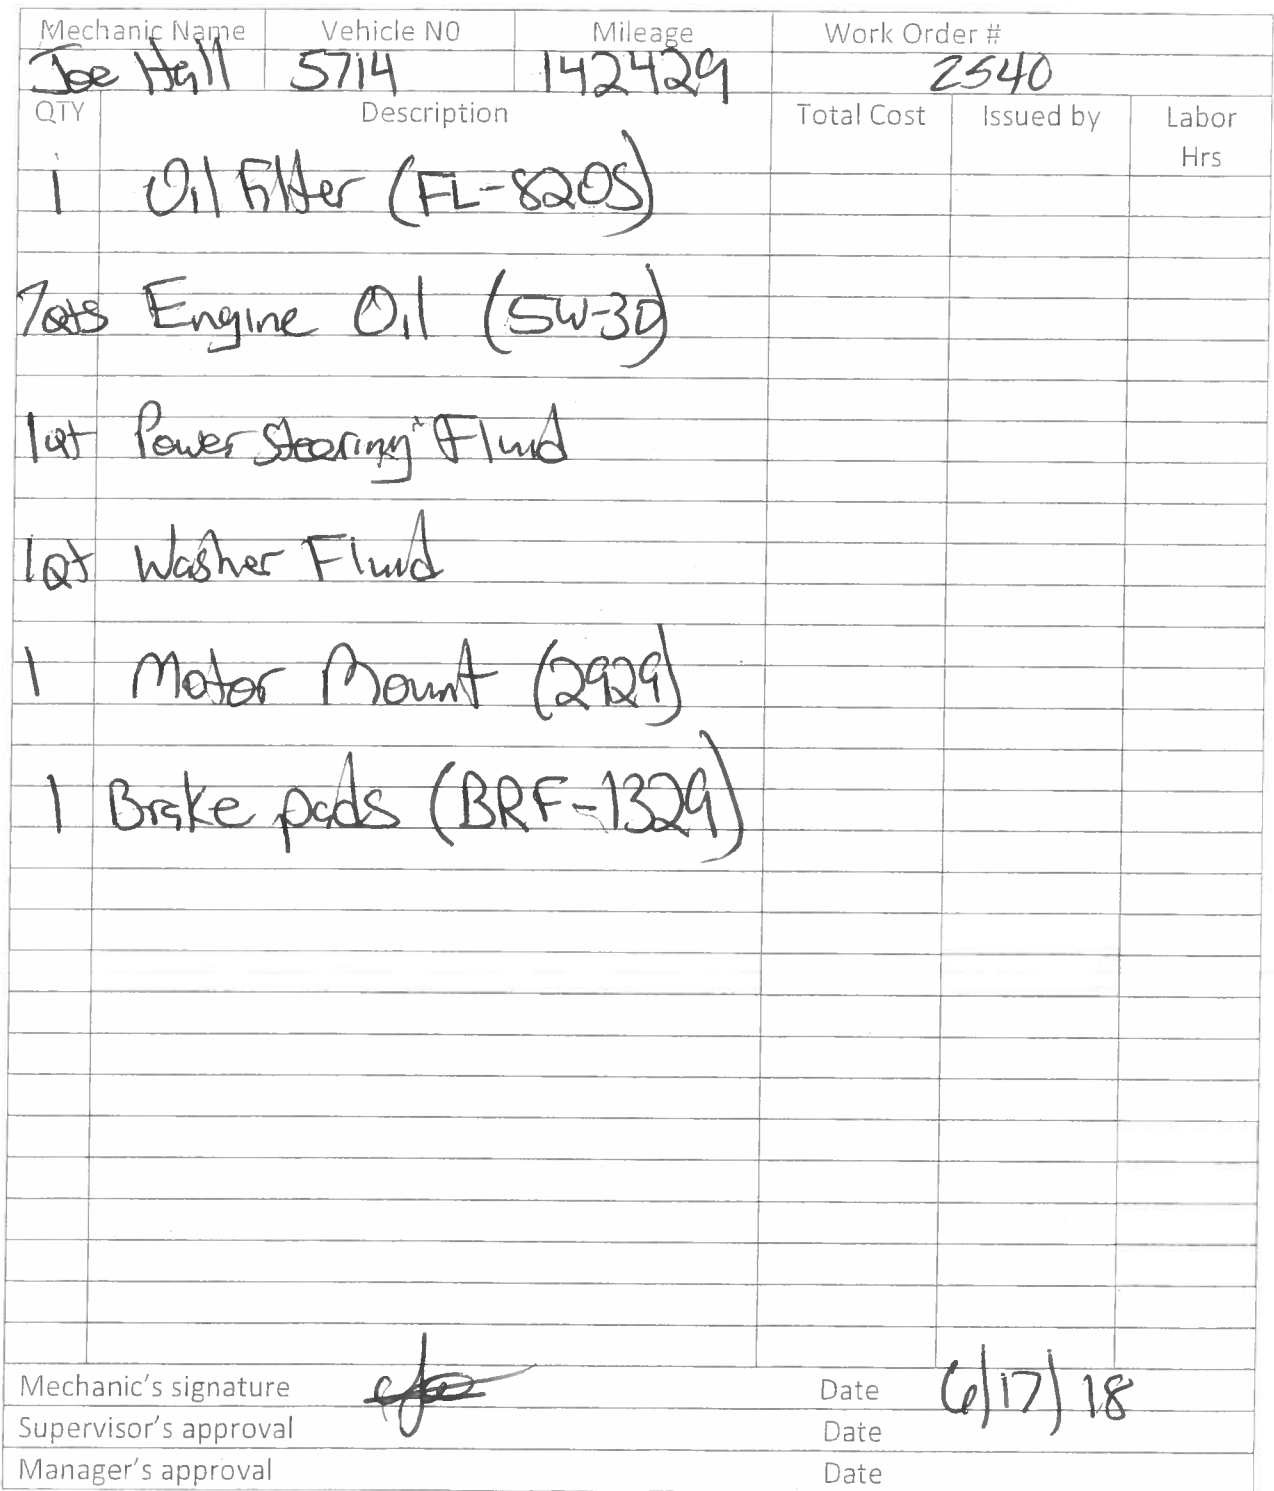 Mechanic Name Vehicle N0 Mileage Work Order #
Joe Hall 5714 142429 2540
QTY Description Total Cost Issued by Labor Hrs
1 Oil Filter (FL-820S)
7qts Engine Oil (5W-30)
1qt Power Steering Fluid
1Qt Washer Fluid
1 Motor Mount (2929)
1 Brake pads (BRF-1329)
Mechanic's signature Joe Date 6/17/18
Supervisor's approval Date
Manager's approval Date